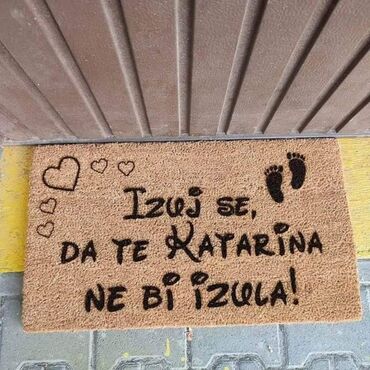 Izuj se,
da te Katarina
ne bi izula!